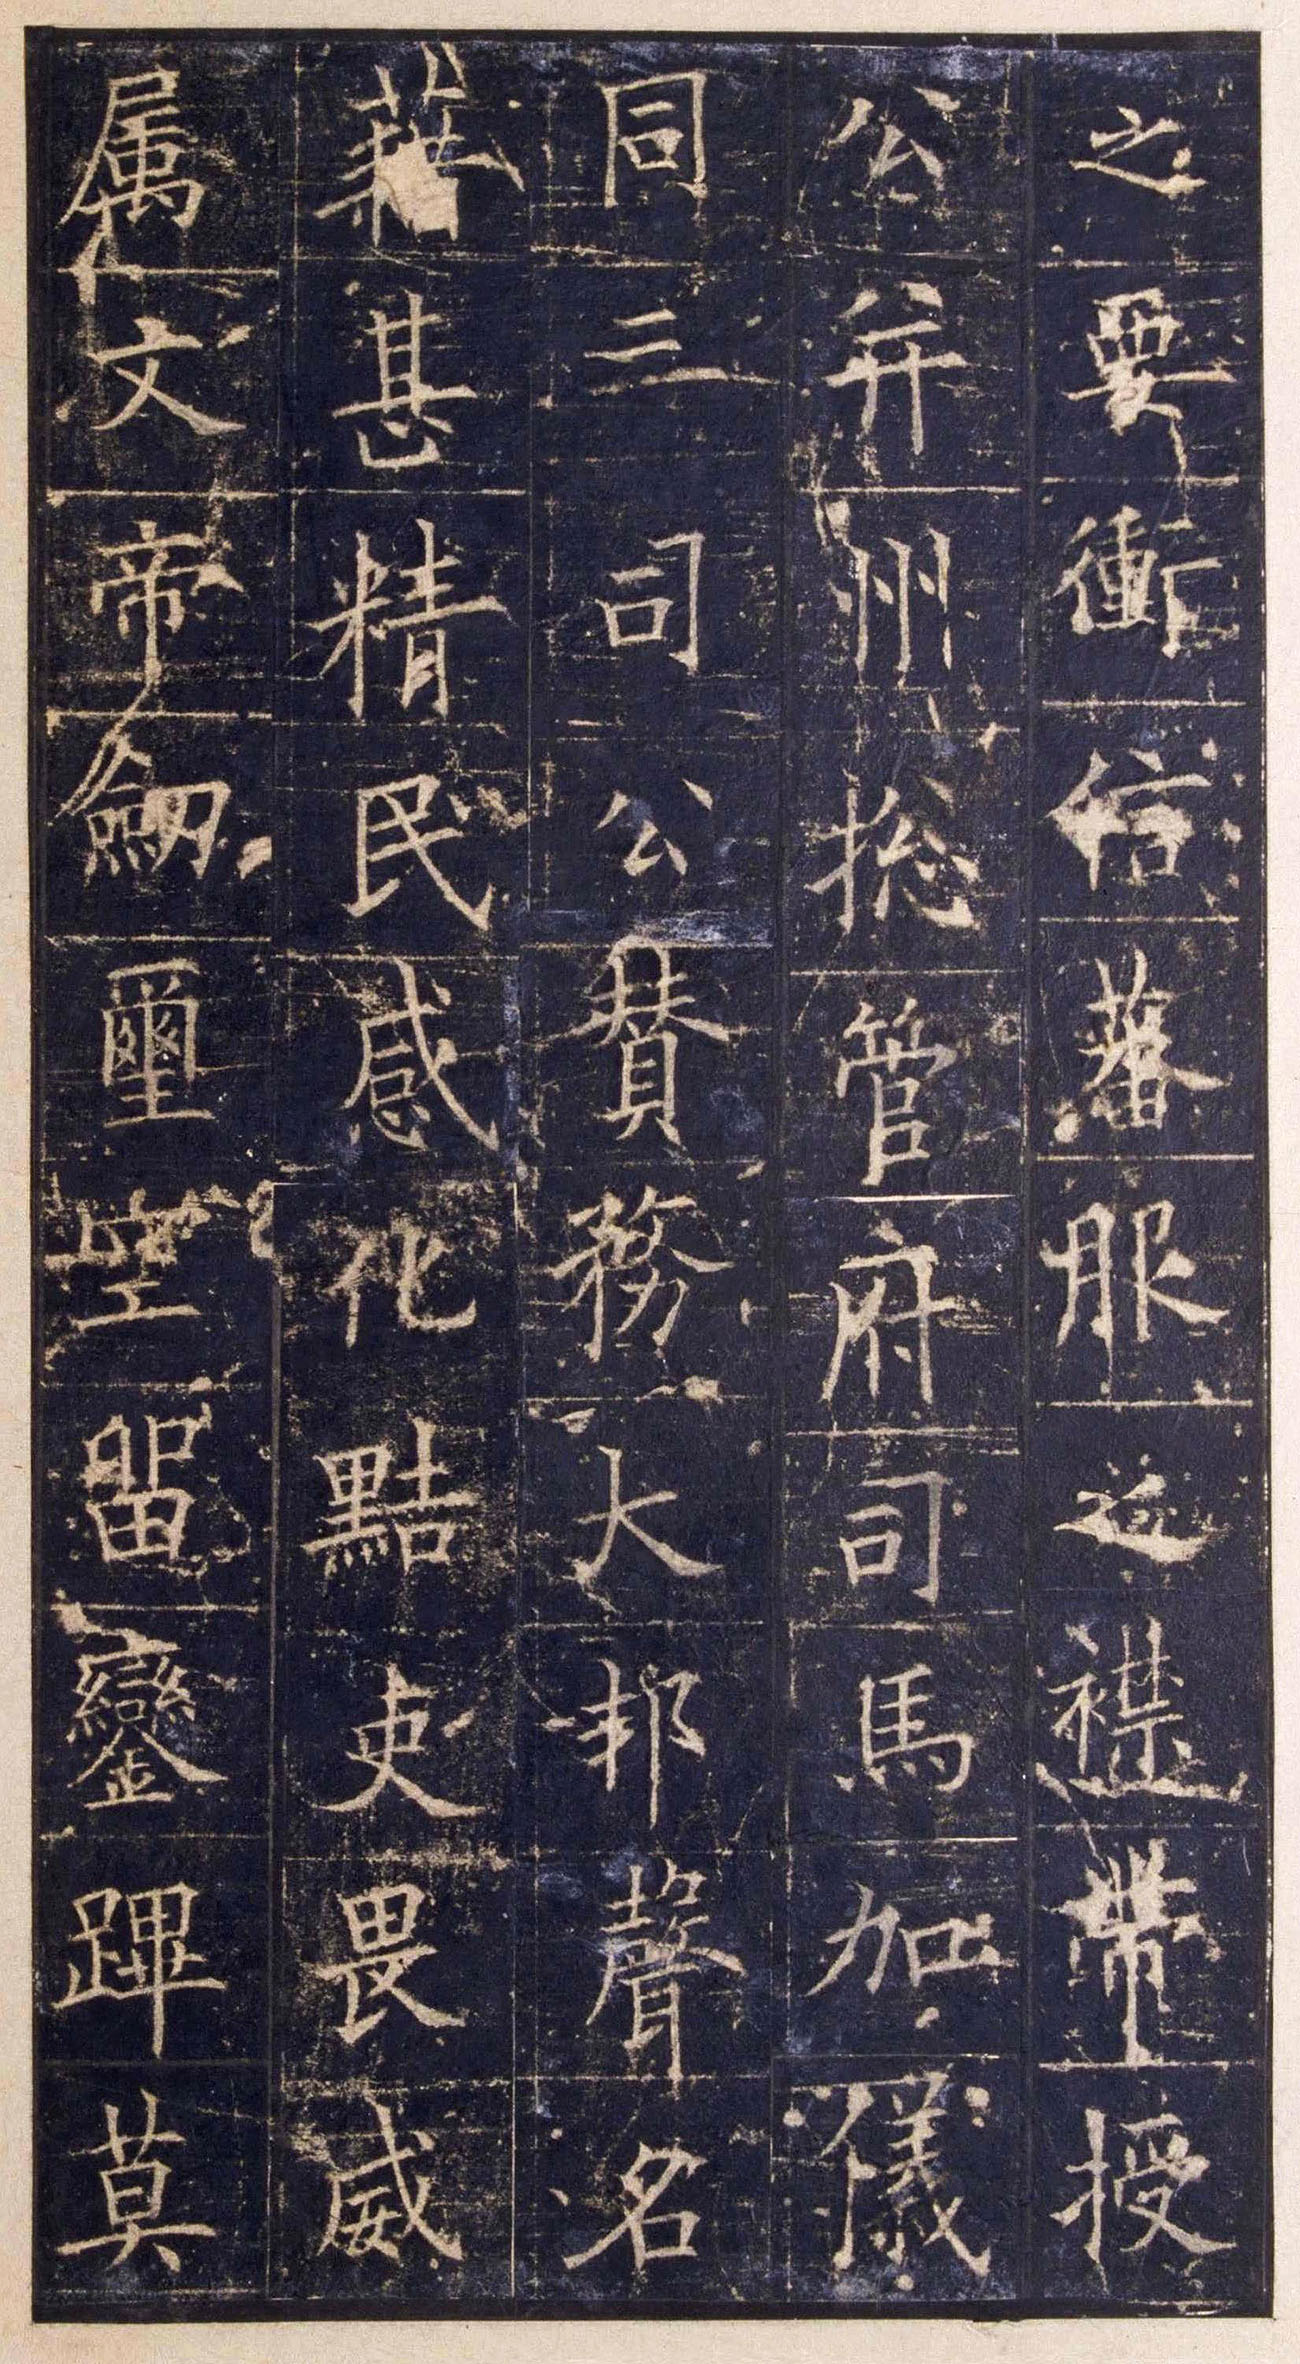 之要衝信蕃服之襟帶授
公并州揔管府司馬加儀
同三司公贊務大邦聲名
藉甚精民感化黠吏畏威
属文帝劔璽空留鑾蹕莫